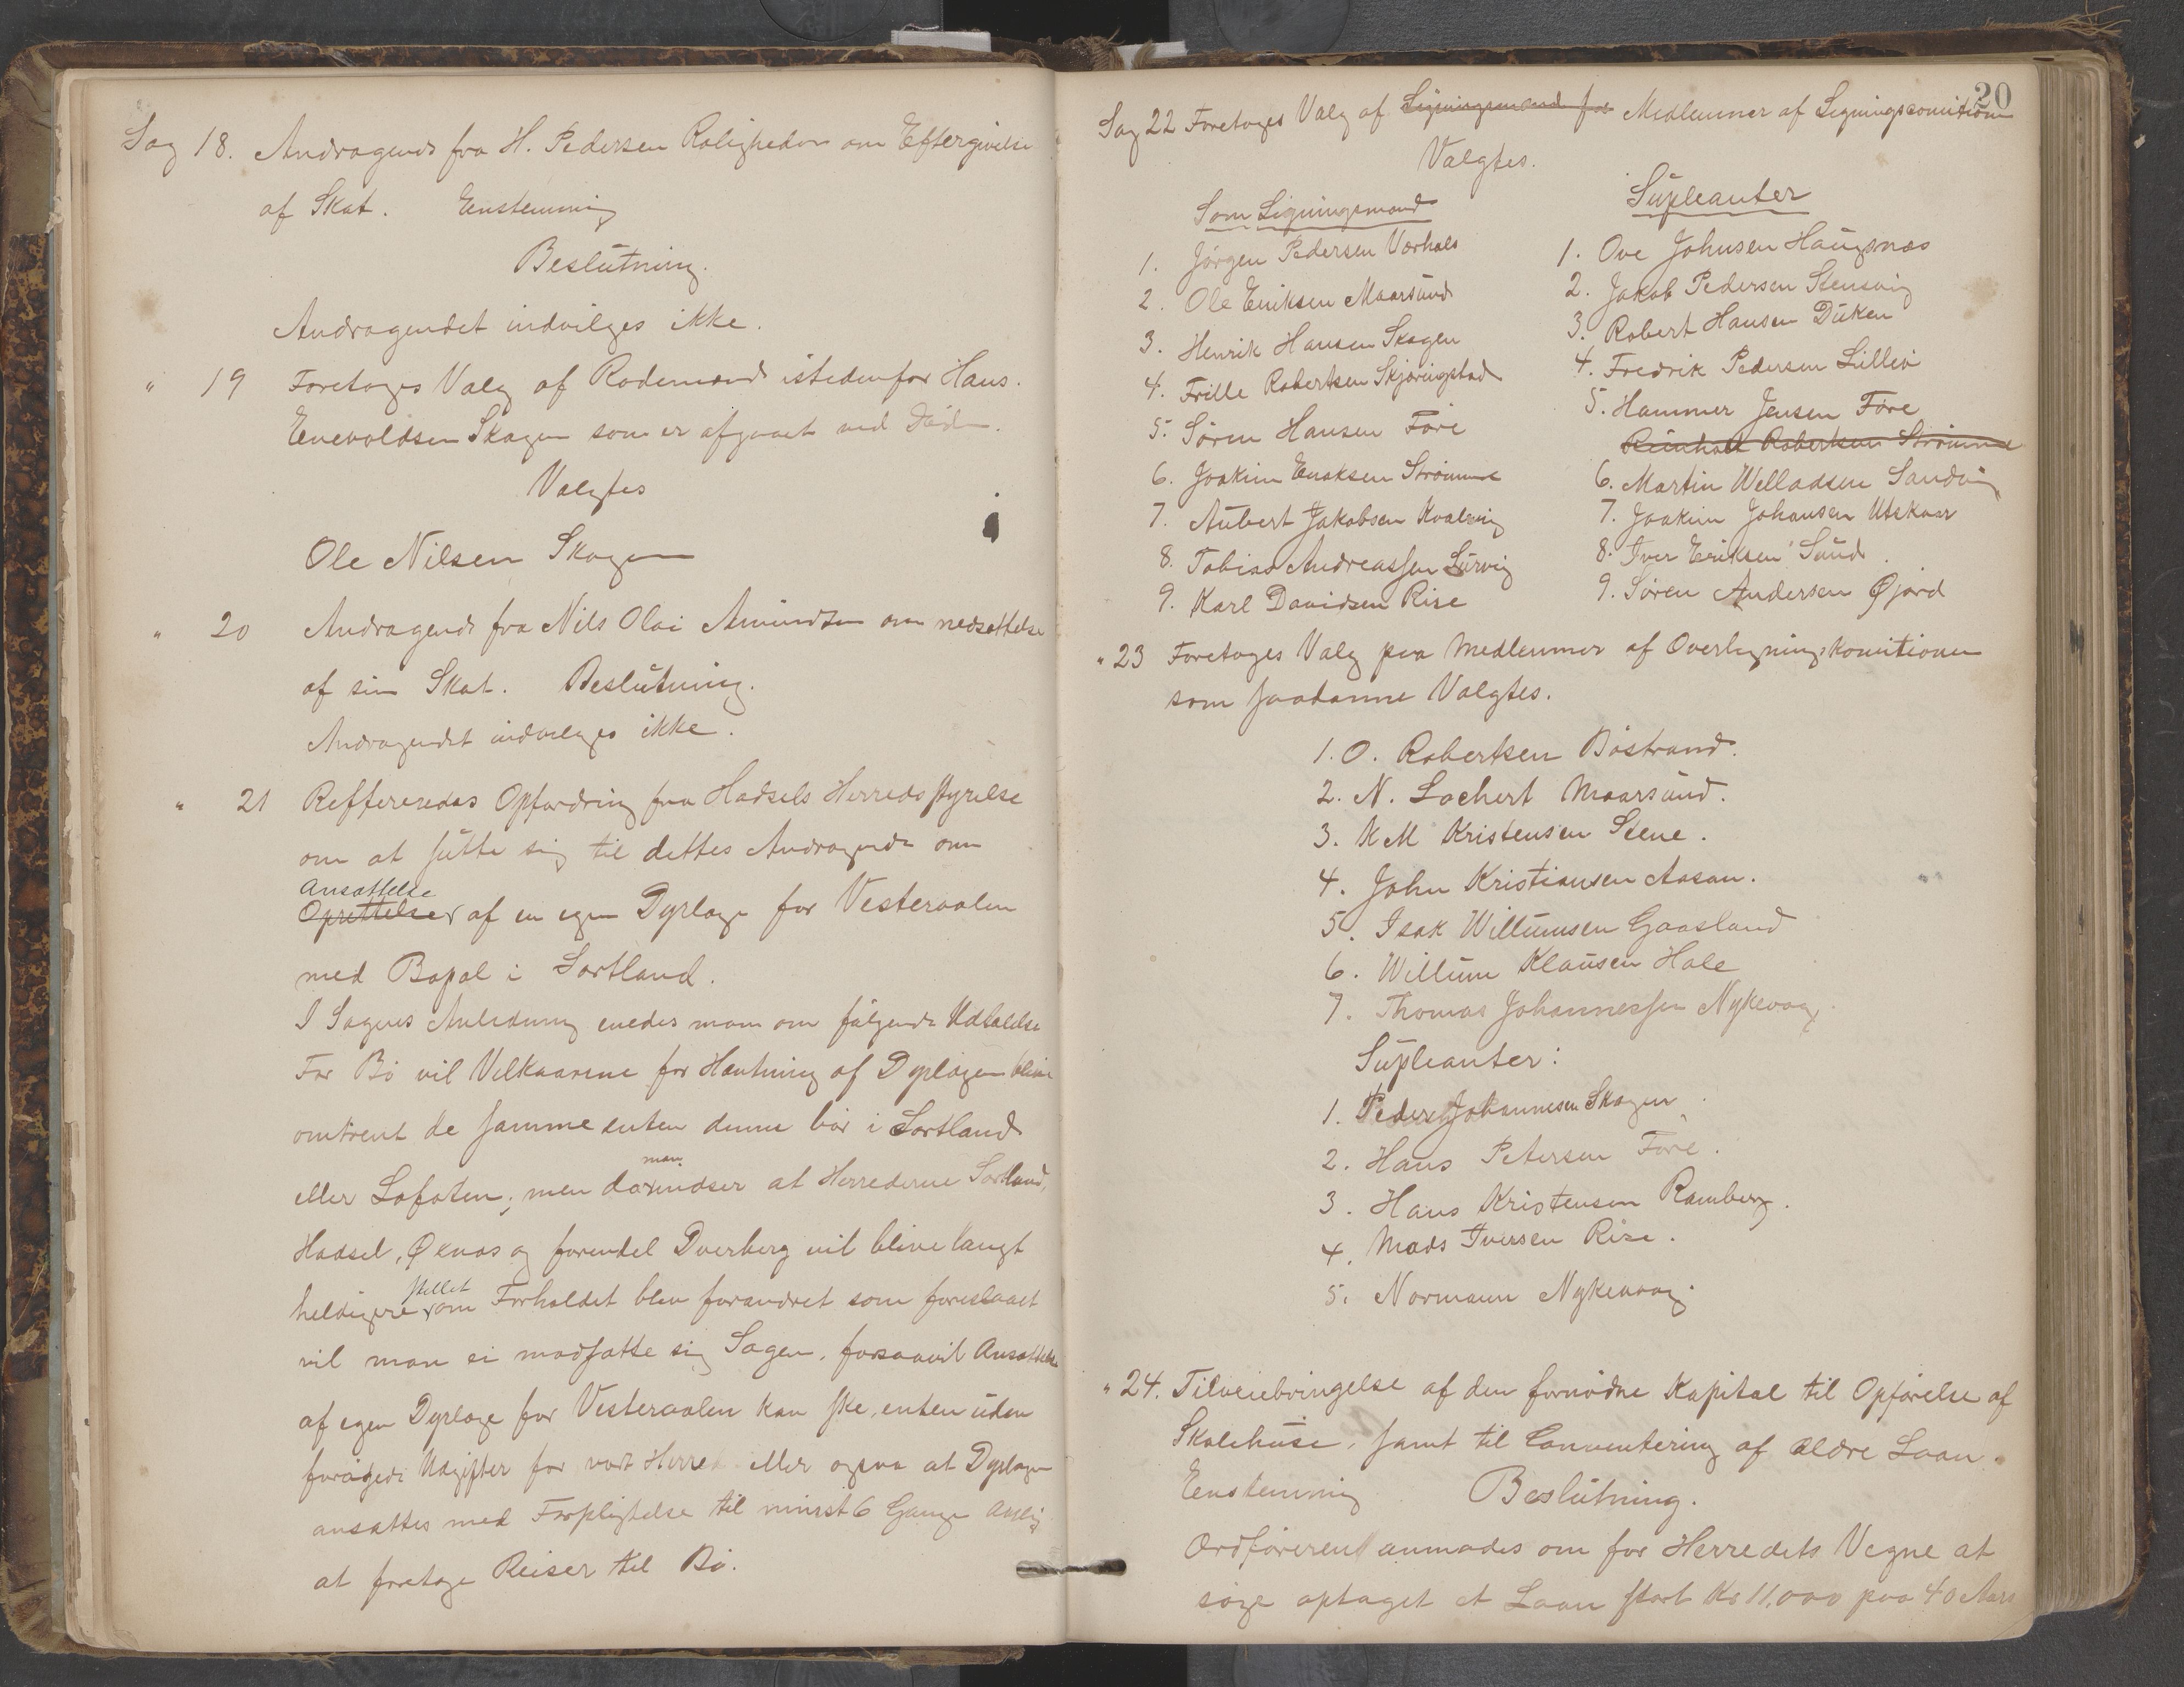 Sag 18. Andragende fra H. Pedersen Roligheden om Eftergivelse
af Skat. Eenstemmig
Beslutning.
Andragendet indvilges ikke.
" 19 Foretages Valg af Rodemand istedenfor Hans
Enevoldsen Skagen som er afgaaet ved Døden.
Valgtes
Ole Nilsen Skagen
" 20 Andragende fra Nils Olai Amundsen om nedsættelse
af sin Skat. Beslutning.
Andragendet indvilges ikke.
" 21 Reffereredes Opfordring fra Hadsels Herredsstyrelse
om at slutte sig til dettes Andragende om
Ansættelse
Oprettelse af en egen Dyrlæge for Vesteraalen
med Bopæl i Sortland.
I Sagens Anledning enedes man om følgende Udtalelse
For Bø vil Vilkaarene for Hentning af Dyrlægen blive
omtrent de samme enten denne bor i Sortland
man
eller Lofoten; men da indser at Herrederne Sortland,
Hadsel, Øxnæs og forendel Dverberg vil blive langt
stillet
heldigere om Forholdet blev forandret som foreslaaet
vil man ei modsætte sig Sagen, forsaavit Ansættelse
af egen Dyrlæge for Vesteraalen kan ske, enten uden
forøgede Udgifter for vort Herred eller ogsaa at Dyrlægen
ansættes med Forpligtelse til mindst 6 Gange aarlig
at foretage Reiser til Bø.
20
Sag 22 Foretages Valg af Ligningsmænd for Medlemmer af Ligningscomiteen
Valgtes.
Som Ligningsmænd
1. Jørgen Pedersen Vorhals
2. Ole Eriksen Maarsund
3. Henrik Hansen Skagen
4. Frille Robertsen Skjøringstad
5. Søren Hansen Føre
6. Joakim Enoksen Strømme
7. Aubert Jakobsen Kvalvig
8. Tobias Andreassen Survig
9. Karl Davidsen Rise
Supleanter
1. Ove Johnsen Haugsnæs
2. Jakob Pedersen Stensvig
3. Robert Hansen Duken
4. Fredrik Pedersen Lillevi
5. Hammer Jensen Føre
Reinholt Robertsen Strømme
6. Martin Welladsen Sandvig
7. Joakim Johansen Utskaar
8. Iver Eriksen Sund
9. Søren Andersen Øjord
" 23 Foretages Valg paa Medlemmer af Overligningskomitionen
som saadanne Valgtes.
1. O. Robertsen Bøstrand.
2. N. Lochert Maarsund.
3. K M Kristensen Steene.
4. John Kristiansen Aasan.
5. Isak Willumsen Gaasland
6. Willum Klausen Hole
7. Thomas Johannessen Nykevaag.
Supleanter:
1. Peder Johannesen Skagen
2. Hans Petersen Føre.
3. Hans Kristensen Ramberg.
4. Mads Iversen Rise.
5. Normann Nykevaag.
" 24. Tilveiebringelse af den fornødne Kapital til Opførelse af
Skolehuse, samt til Conventering af ældre Laan.
Eenstemmig Beslutning.
Ordføreren anmodes om for Herredets Vegne at
søge optaget et Laan stort Kr 11,000 paa 40 Aars